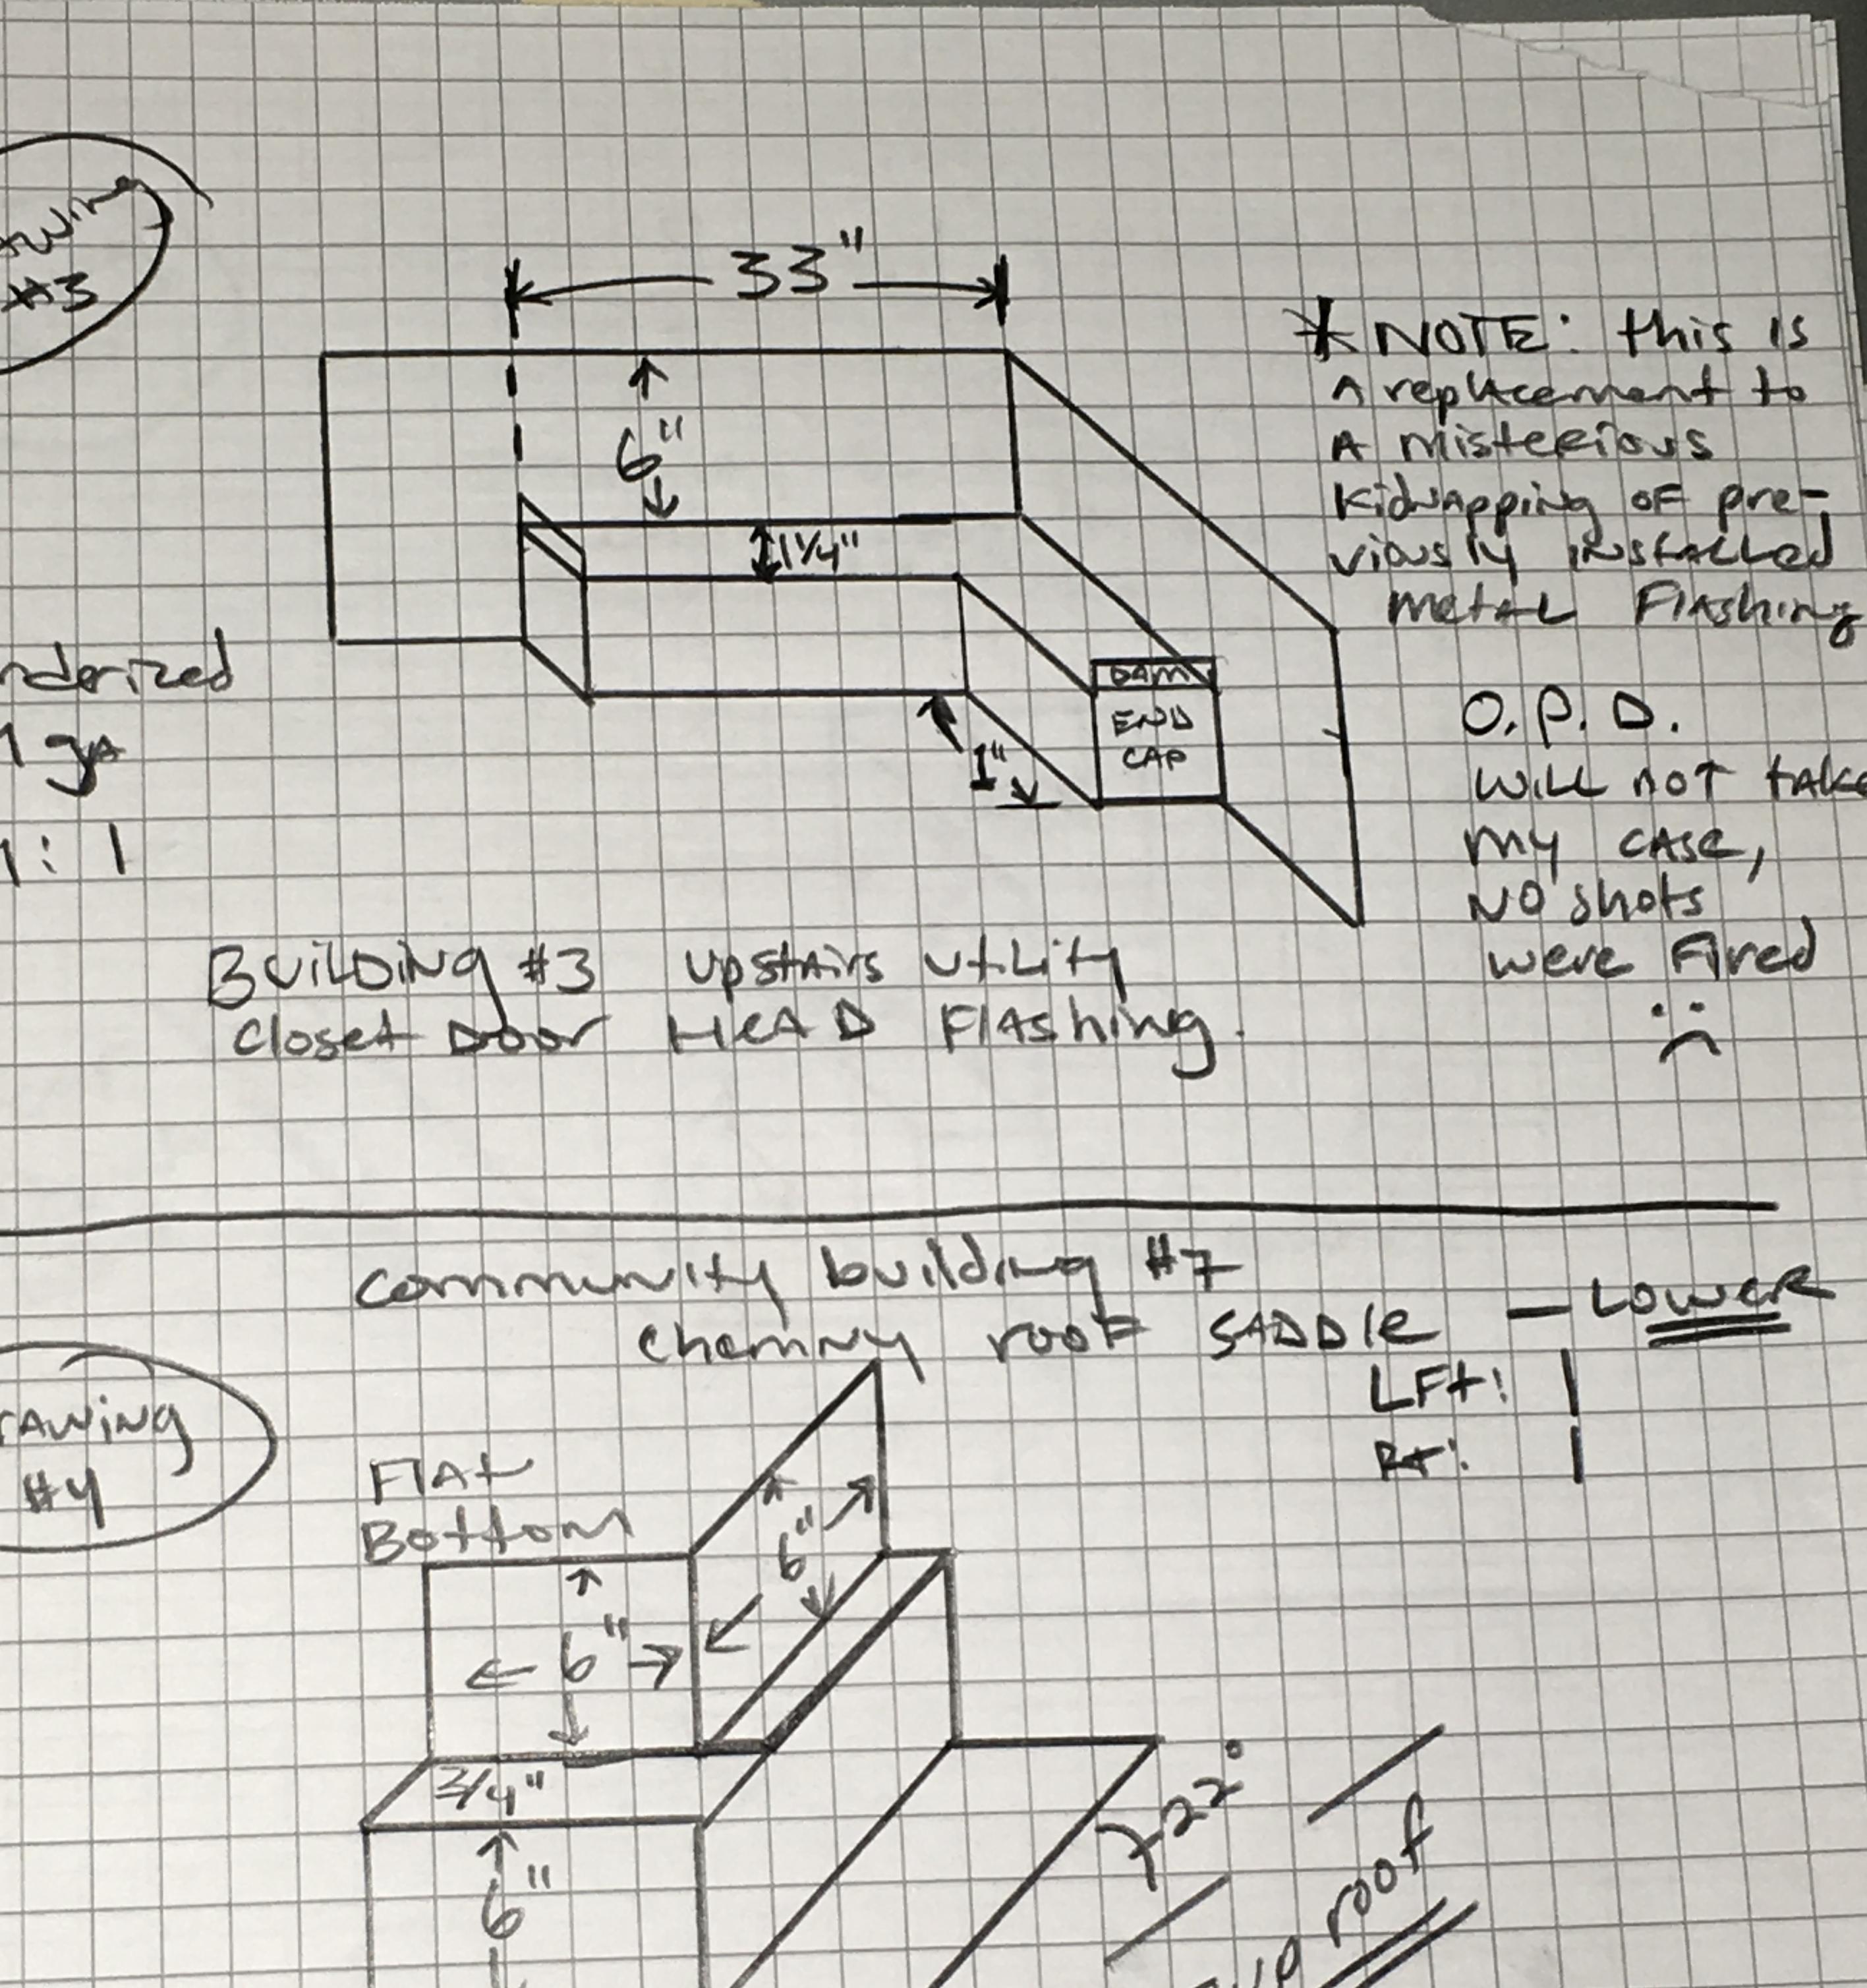 #3
33"
6"
1 1/4"
DAM
END
CAP
1"
* NOTE: this is
A replacement to
A misterious
Kidnapping of pre-
viously installed
metal Flashing
O.P.D.
will not take
my case,
NO shots
were Fired
:(
nderized
ga
: 1
Building #3 upstairs utility
closet Door HEAD Flashing.
community building #7
chemny roof SADDle — LOWER
LFt: |
Rt: |
rawing
#4
Flat
Bottom
6"
6"
3/4"
6"
22°
roof